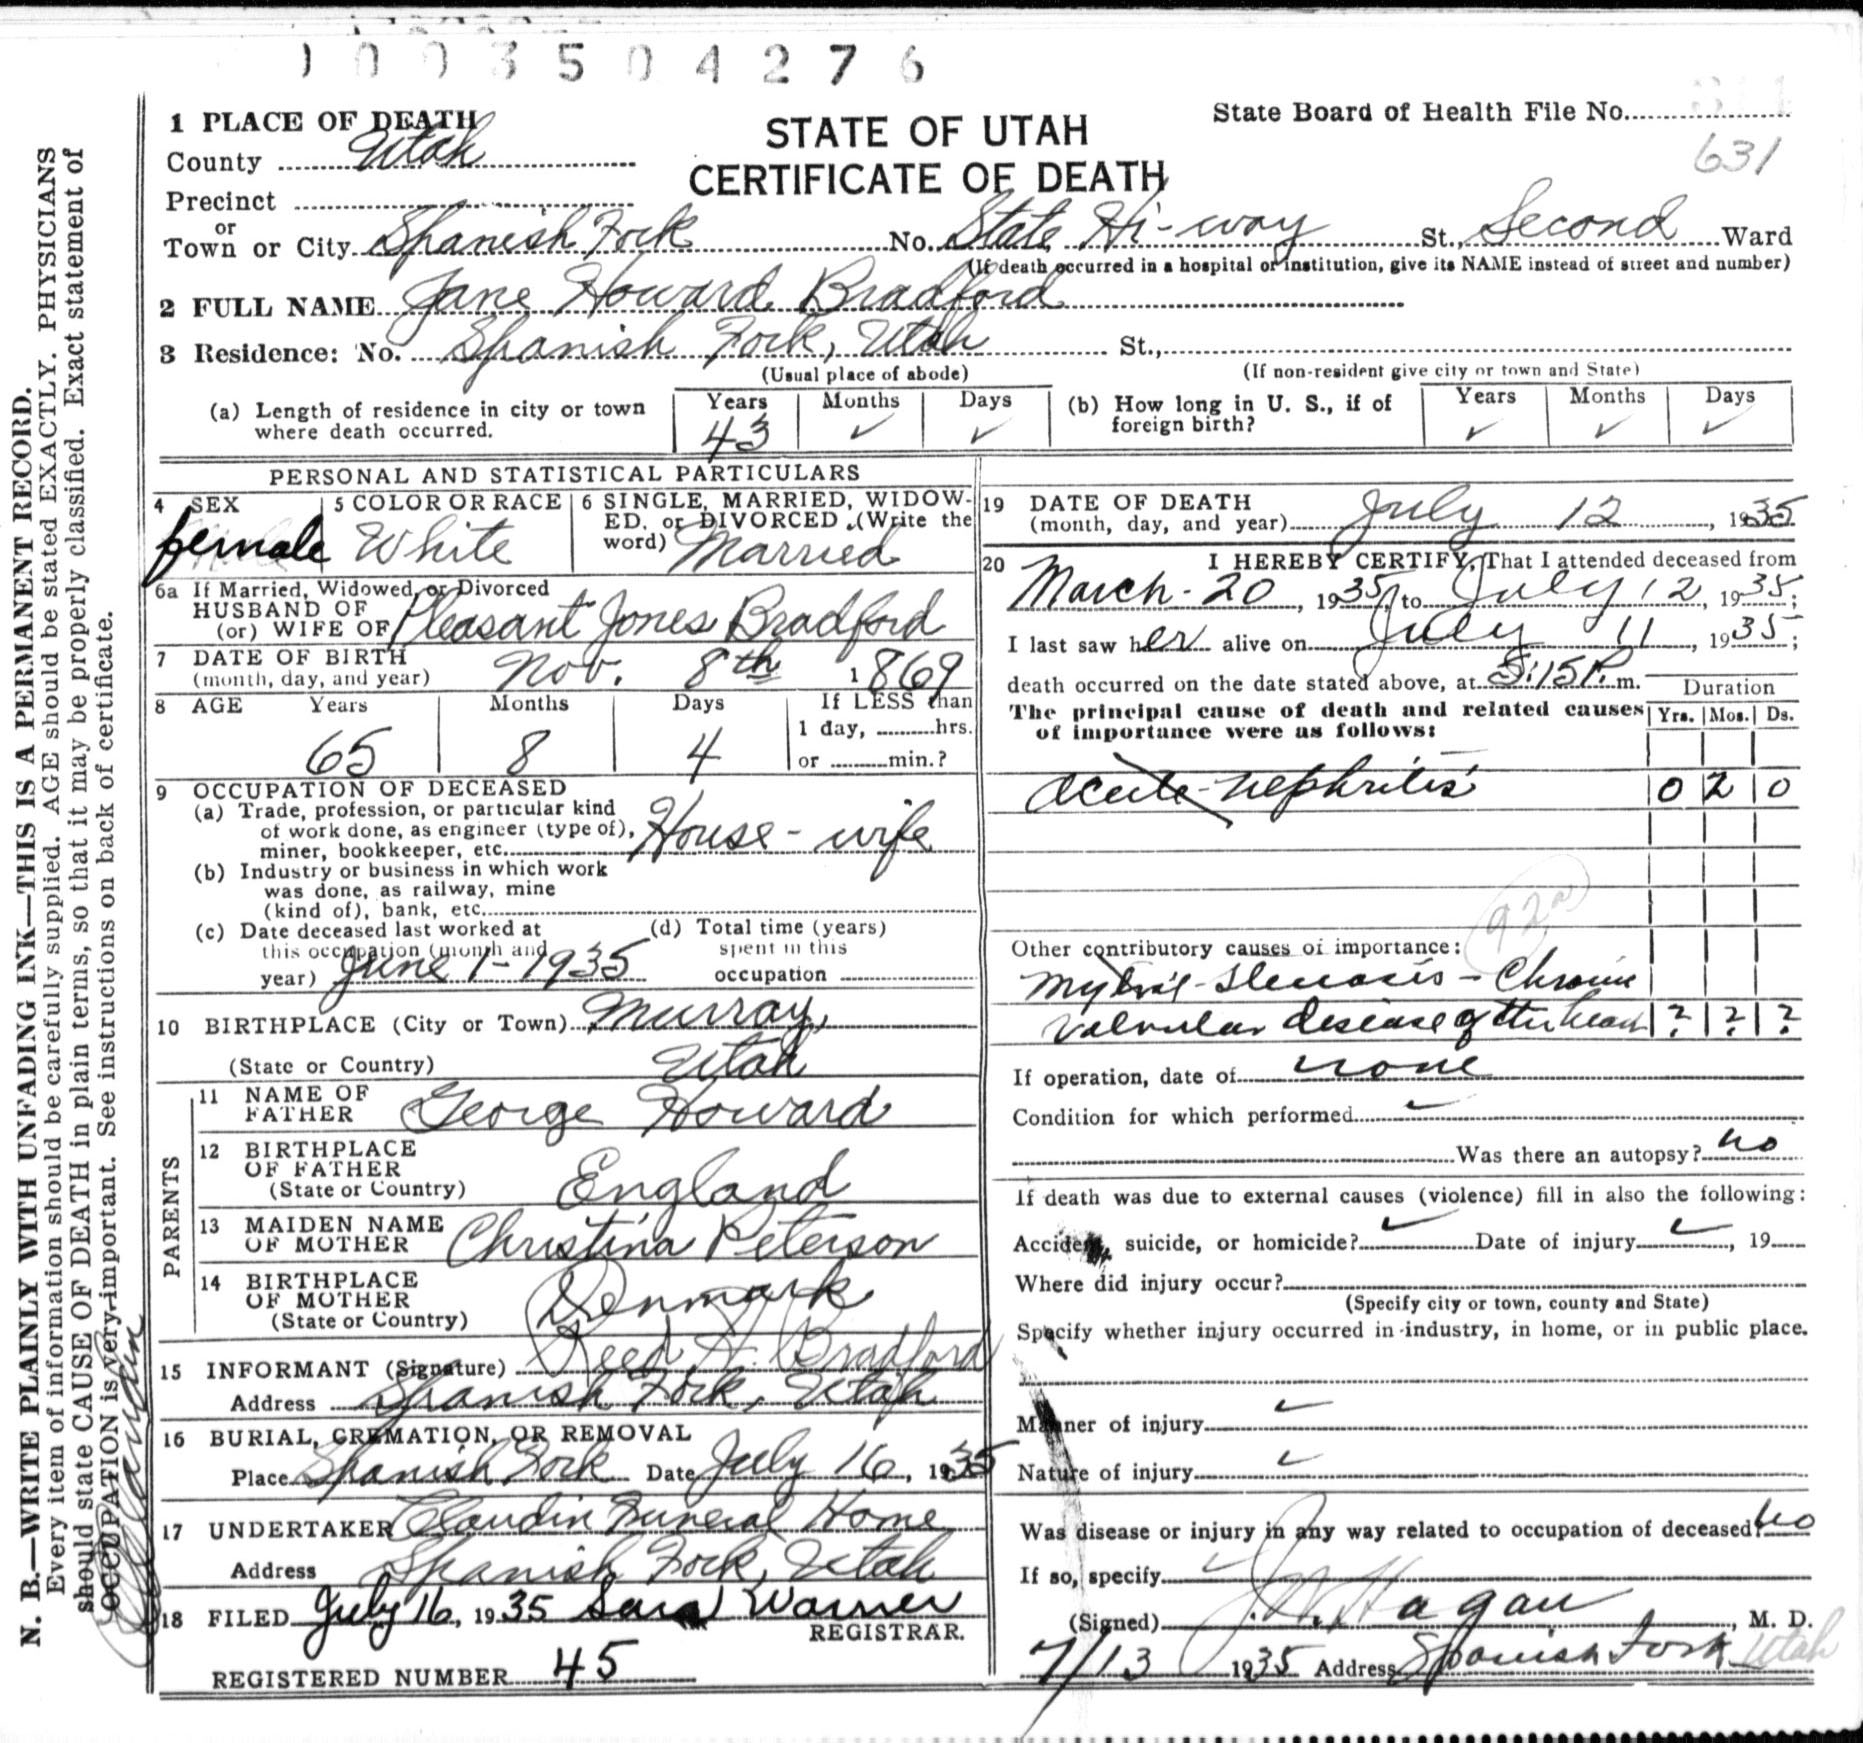 1003504276
1 PLACE OF DEATH
County Utah
STATE OF UTAH
CERTIFICATE OF DEATH
State Board of Health File No.
631
Precinct
or
Town or City Spanish Fork No. State Hi-way St., Second Ward
(If death occurred in a hospital or institution, give its NAME instead of street and number)
2 FULL NAME Jane Howard Bradford
3 Residence: No. Spanish Fork, Utah St.,
(Usual place of abode) (If non-resident give city or town and State)
(a) Length of residence in city or town where death occurred. Years 43 Months ✓ Days ✓
(b) How long in U. S., if of foreign birth? Years ✓ Months ✓ Days ✓
PERSONAL AND STATISTICAL PARTICULARS
4 SEX female
5 COLOR OR RACE White
6 SINGLE, MARRIED, WIDOW-
ED, or DIVORCED (Write the
word) Married
6a If Married, Widowed, or Divorced
HUSBAND OF
(or) WIFE OF Pleasant Jones Bradford
7 DATE OF BIRTH
(month, day, and year) Nov. 8th 1869
8 AGE Years 65 Months 8 Days 4 If LESS than
1 day, hrs.
or min.?
9 OCCUPATION OF DECEASED
(a) Trade, profession, or particular kind
of work done, as engineer (type of),
miner, bookkeeper, etc. House-wife
(b) Industry or business in which work
was done, as railway, mine
(kind of), bank, etc.
(c) Date deceased last worked at
this occupation (month and
year) June 1-1935
(d) Total time (years)
spent in this
occupation
10 BIRTHPLACE (City or Town) Murray,
(State or Country) Utah
PARENTS
11 NAME OF
FATHER George Howard
12 BIRTHPLACE
OF FATHER
(State or Country) England
13 MAIDEN NAME
OF MOTHER Christina Peterson
14 BIRTHPLACE
OF MOTHER
(State or Country) Denmark
15 INFORMANT (Signature) Reed H. Bradford
Address Spanish Fork, Utah
16 BURIAL, CREMATION, OR REMOVAL
Place Spanish Fork Date July 16, 1935
17 UNDERTAKER Claudin Funeral Home
Address Spanish Fork, Utah
18 FILED July 16, 1935 Sara Warner
REGISTRAR.
REGISTERED NUMBER 45
19 DATE OF DEATH
(month, day, and year) July 12, 1935
20 I HEREBY CERTIFY, That I attended deceased from
March-20, 1935, to July 12, 1935;
I last saw her alive on July 11, 1935;
death occurred on the date stated above, at 5:15 P. m.
Duration
The principal cause of death and related causes Yrs. Mos. Ds.
of importance were as follows:
acute nephritis 0 2 0
92a
Other contributory causes of importance:
Mytral-Stenosis - Chronic
valvular disease of the heart ? ? ?
If operation, date of none
Condition for which performed ✓
Was there an autopsy? no
If death was due to external causes (violence) fill in also the following:
Accident, suicide, or homicide? ✓ Date of injury ✓, 19
Where did injury occur?
(Specify city or town, county and State)
Specify whether injury occurred in industry, in home, or in public place.
Manner of injury ✓
Nature of injury ✓
Was disease or injury in any way related to occupation of deceased? no
If so, specify ✓
(Signed) Hagan, M. D.
7/13 1935 Address Spanish Fork Utah
N. B.—WRITE PLAINLY WITH UNFADING INK—THIS IS A PERMANENT RECORD.
Every item of information should be carefully supplied. AGE should be stated EXACTLY. PHYSICIANS
should state CAUSE OF DEATH in plain terms, so that it may be properly classified. Exact statement of
OCCUPATION is very important. See instructions on back of certificate.